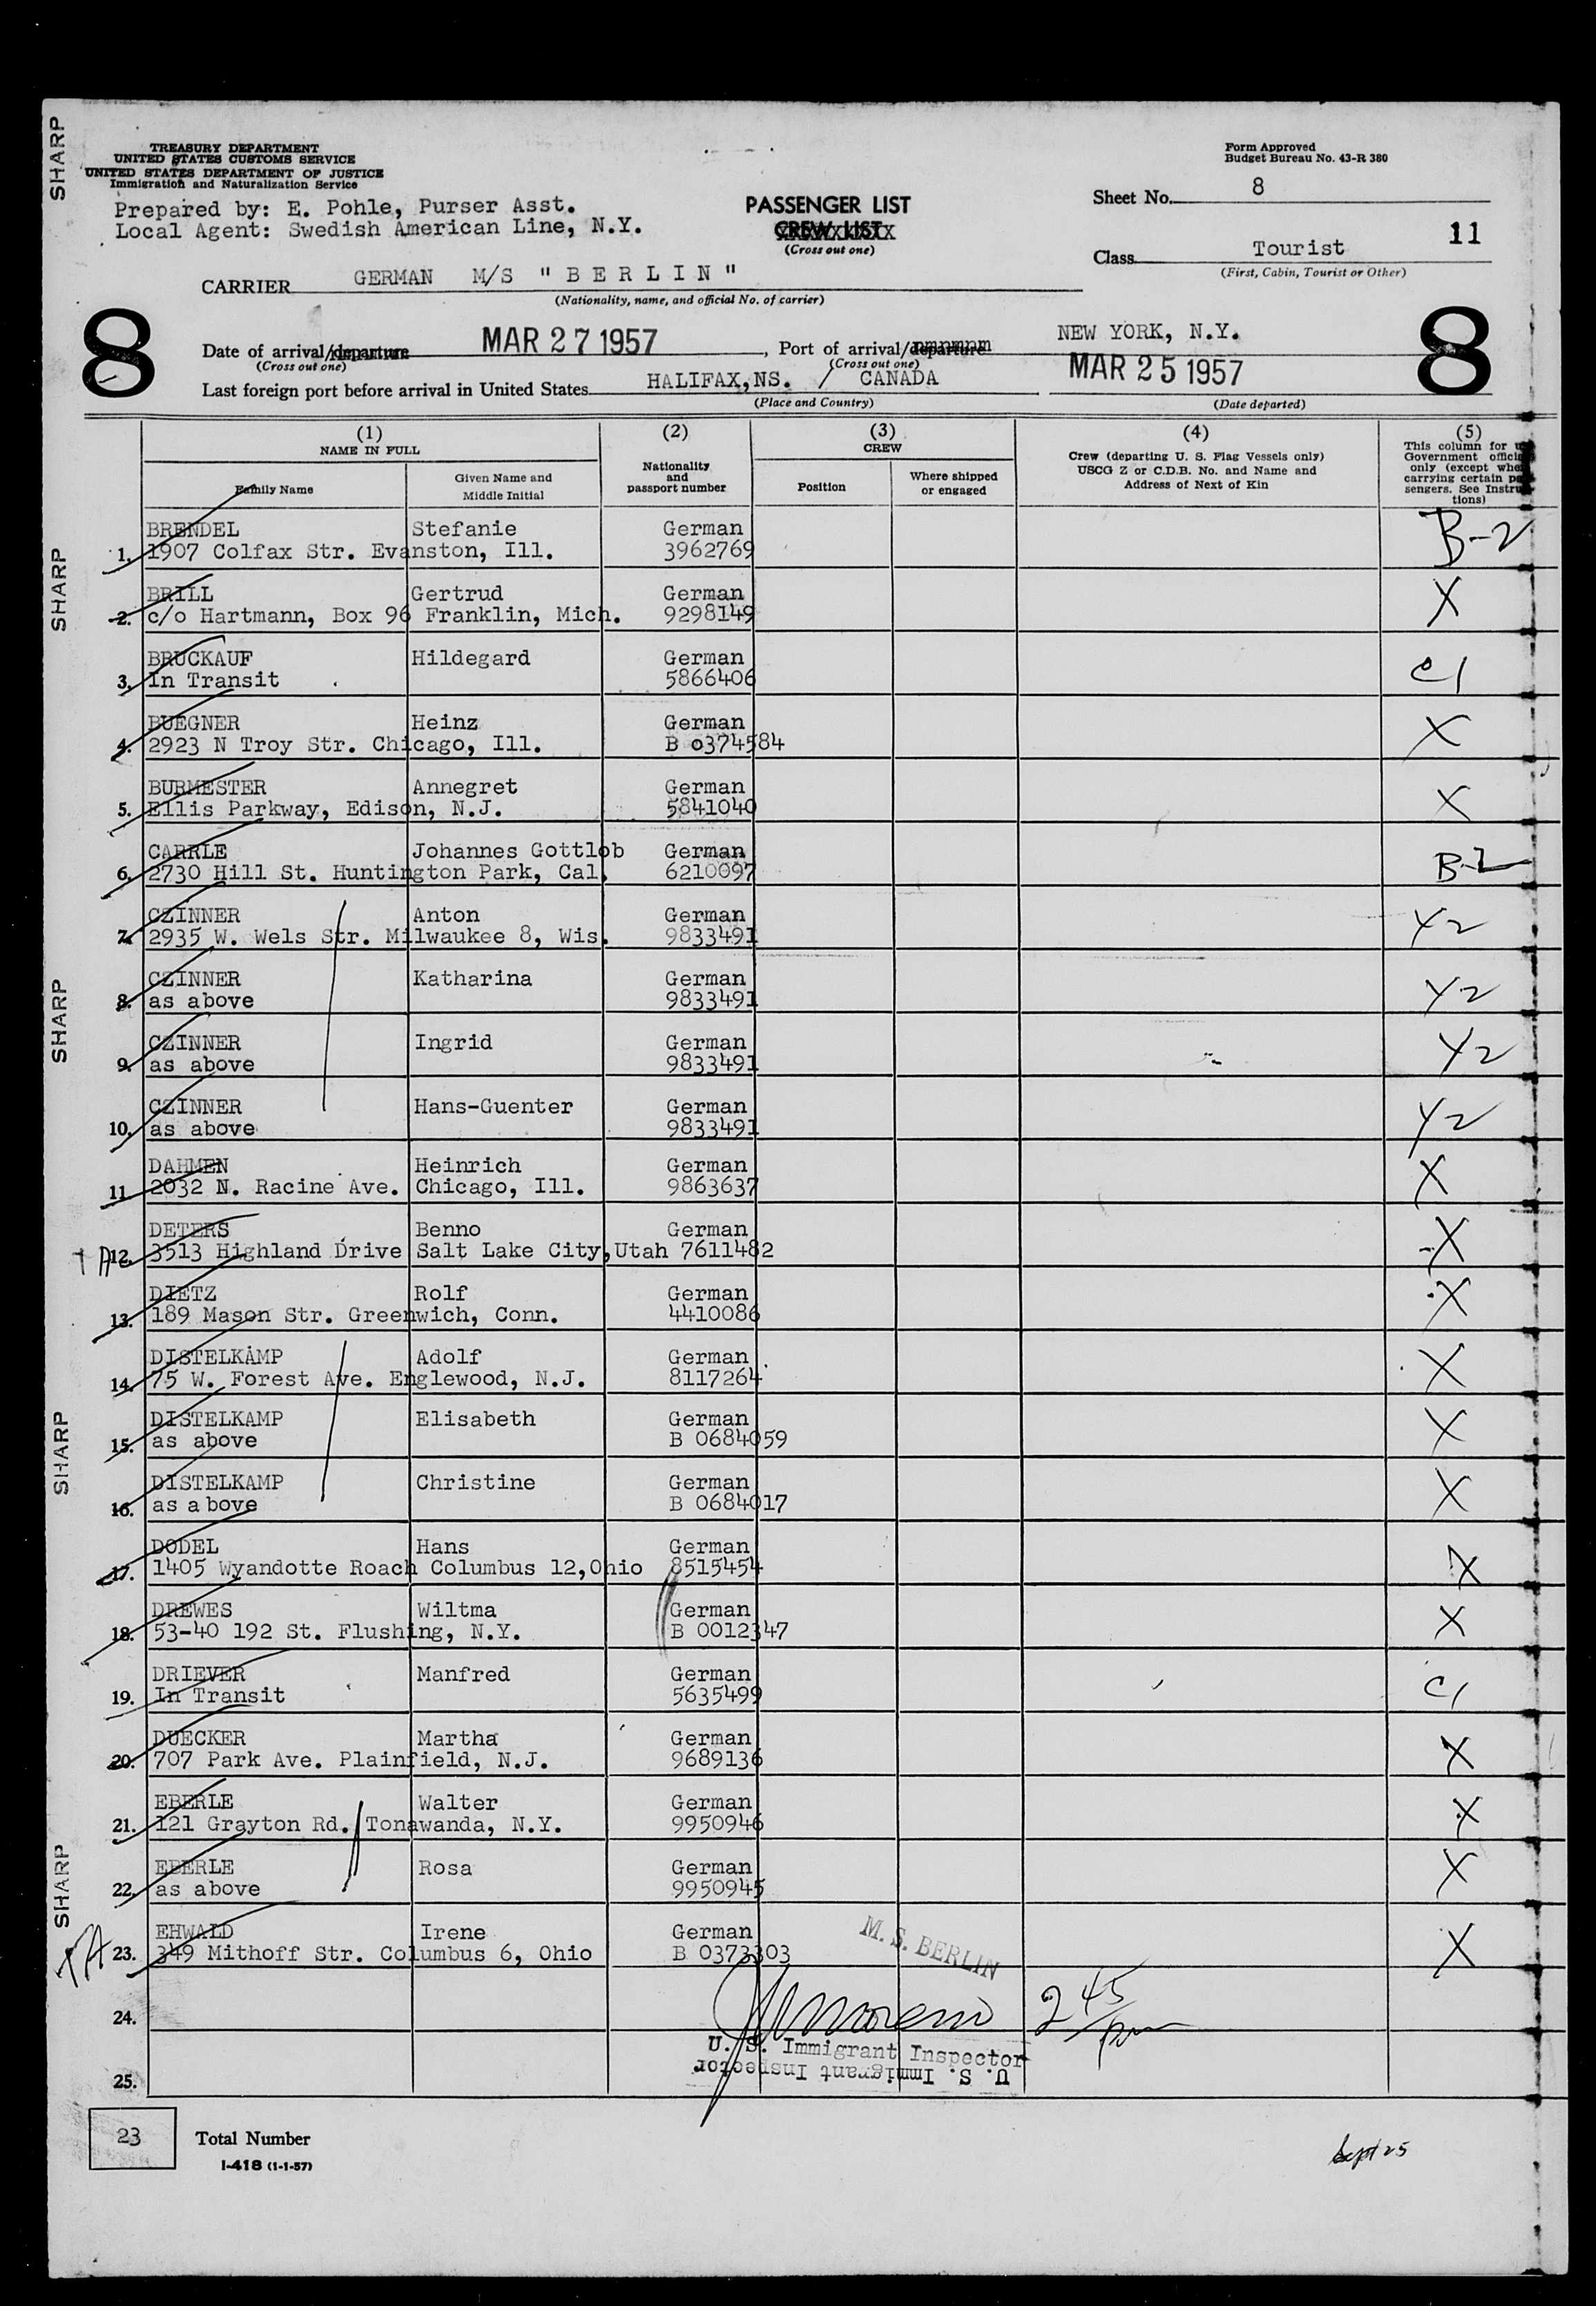 TREASURY DEPARTMENT
UNITED STATES CUSTOMS SERVICE
UNITED STATES DEPARTMENT OF JUSTICE
Immigration and Naturalization Service
Prepared by: E. Pohle, Purser Asst.
Local Agent: Swedish American Line, N.Y.
PASSENGER LIST
CREW LIST
(Cross out one)
Form Approved
Budget Bureau No. 43-R 380
Sheet No. 8
11
Class Tourist
(First, Cabin, Tourist or Other)
CARRIER GERMAN M/S "BERLIN"
(Nationality, name, and official No. of carrier)
8
8
Date of arrival/departure MAR 27 1957, Port of arrival/departure NEW YORK, N.Y.
(Cross out one) (Cross out one)
Last foreign port before arrival in United States HALIFAX,NS. / CANADA MAR 25 1957
(Place and Country) (Date departed)
(1) NAME IN FULL
Family Name
Given Name and Middle Initial
(2) Nationality and passport number
(3) CREW
Position
Where shipped or engaged
(4) Crew (departing U. S. Flag Vessels only) USCG Z or C.D.B. No. and Name and Address of Next of Kin
(5) This column for Government only (except carrying certain sengers. See tions)
1. BRENDEL Stefanie German B-2
1907 Colfax Str. Evanston, Ill. 3962769
2. BRILL Gertrud German X
c/o Hartmann, Box 96 Franklin, Mich. 9298149
3. BRUCKAUF Hildegard German C1
In Transit 5866406
4. BUEGNER Heinz German X
2923 N Troy Str. Chicago, Ill. B 0374584
5. BURMESTER Annegret German X
Ellis Parkway, Edison, N.J. 5841040
6. CARRLE Johannes Gottlob German B-2
2730 Hill St. Huntington Park, Cal. 6210097
7. CZINNER Anton German Y2
2935 W. Wels Str. Milwaukee 8, Wis. 9833491
8. CZINNER Katharina German Y2
as above 9833491
9. CZINNER Ingrid German Y2
as above 9833491
10. CZINNER Hans-Guenter German Y2
as above 9833491
11. DAHMEN Heinrich German X
2032 N. Racine Ave. Chicago, Ill. 9863637
12. DETERS Benno German X
3513 Highland Drive Salt Lake City,Utah 7611482
13. DIETZ Rolf German X
189 Mason Str. Greenwich, Conn. 4410086
14. DISTELKAMP Adolf German X
75 W. Forest Ave. Englewood, N.J. 8117264
15. DISTELKAMP Elisabeth German X
as above B 0684059
16. DISTELKAMP Christine German X
as above B 0684017
17. DODEL Hans German X
1405 Wyandotte Roach Columbus 12,Ohio 8515454
18. DREWES Wiltma German X
53-40 192 St. Flushing, N.Y. B 0012347
19. DRIEVER Manfred German C1
In Transit 5635499
20. DUECKER Martha German X
707 Park Ave. Plainfield, N.J. 9689136
21. EBERLE Walter German X
121 Grayton Rd. Tonawanda, N.Y. 9950946
22. EBERLE Rosa German X
as above 9950945
23. EHWALD Irene German X
349 Mithoff Str. Columbus 6, Ohio B 0373303
M. S. BERLIN
24. 2 45 pm
U. S. Immigrant Inspector
U. S. Immigrant Inspector
25.
23 Total Number
I-418 (1-1-57)
SHARP
SHARP
SHARP
SHARP
SHARP